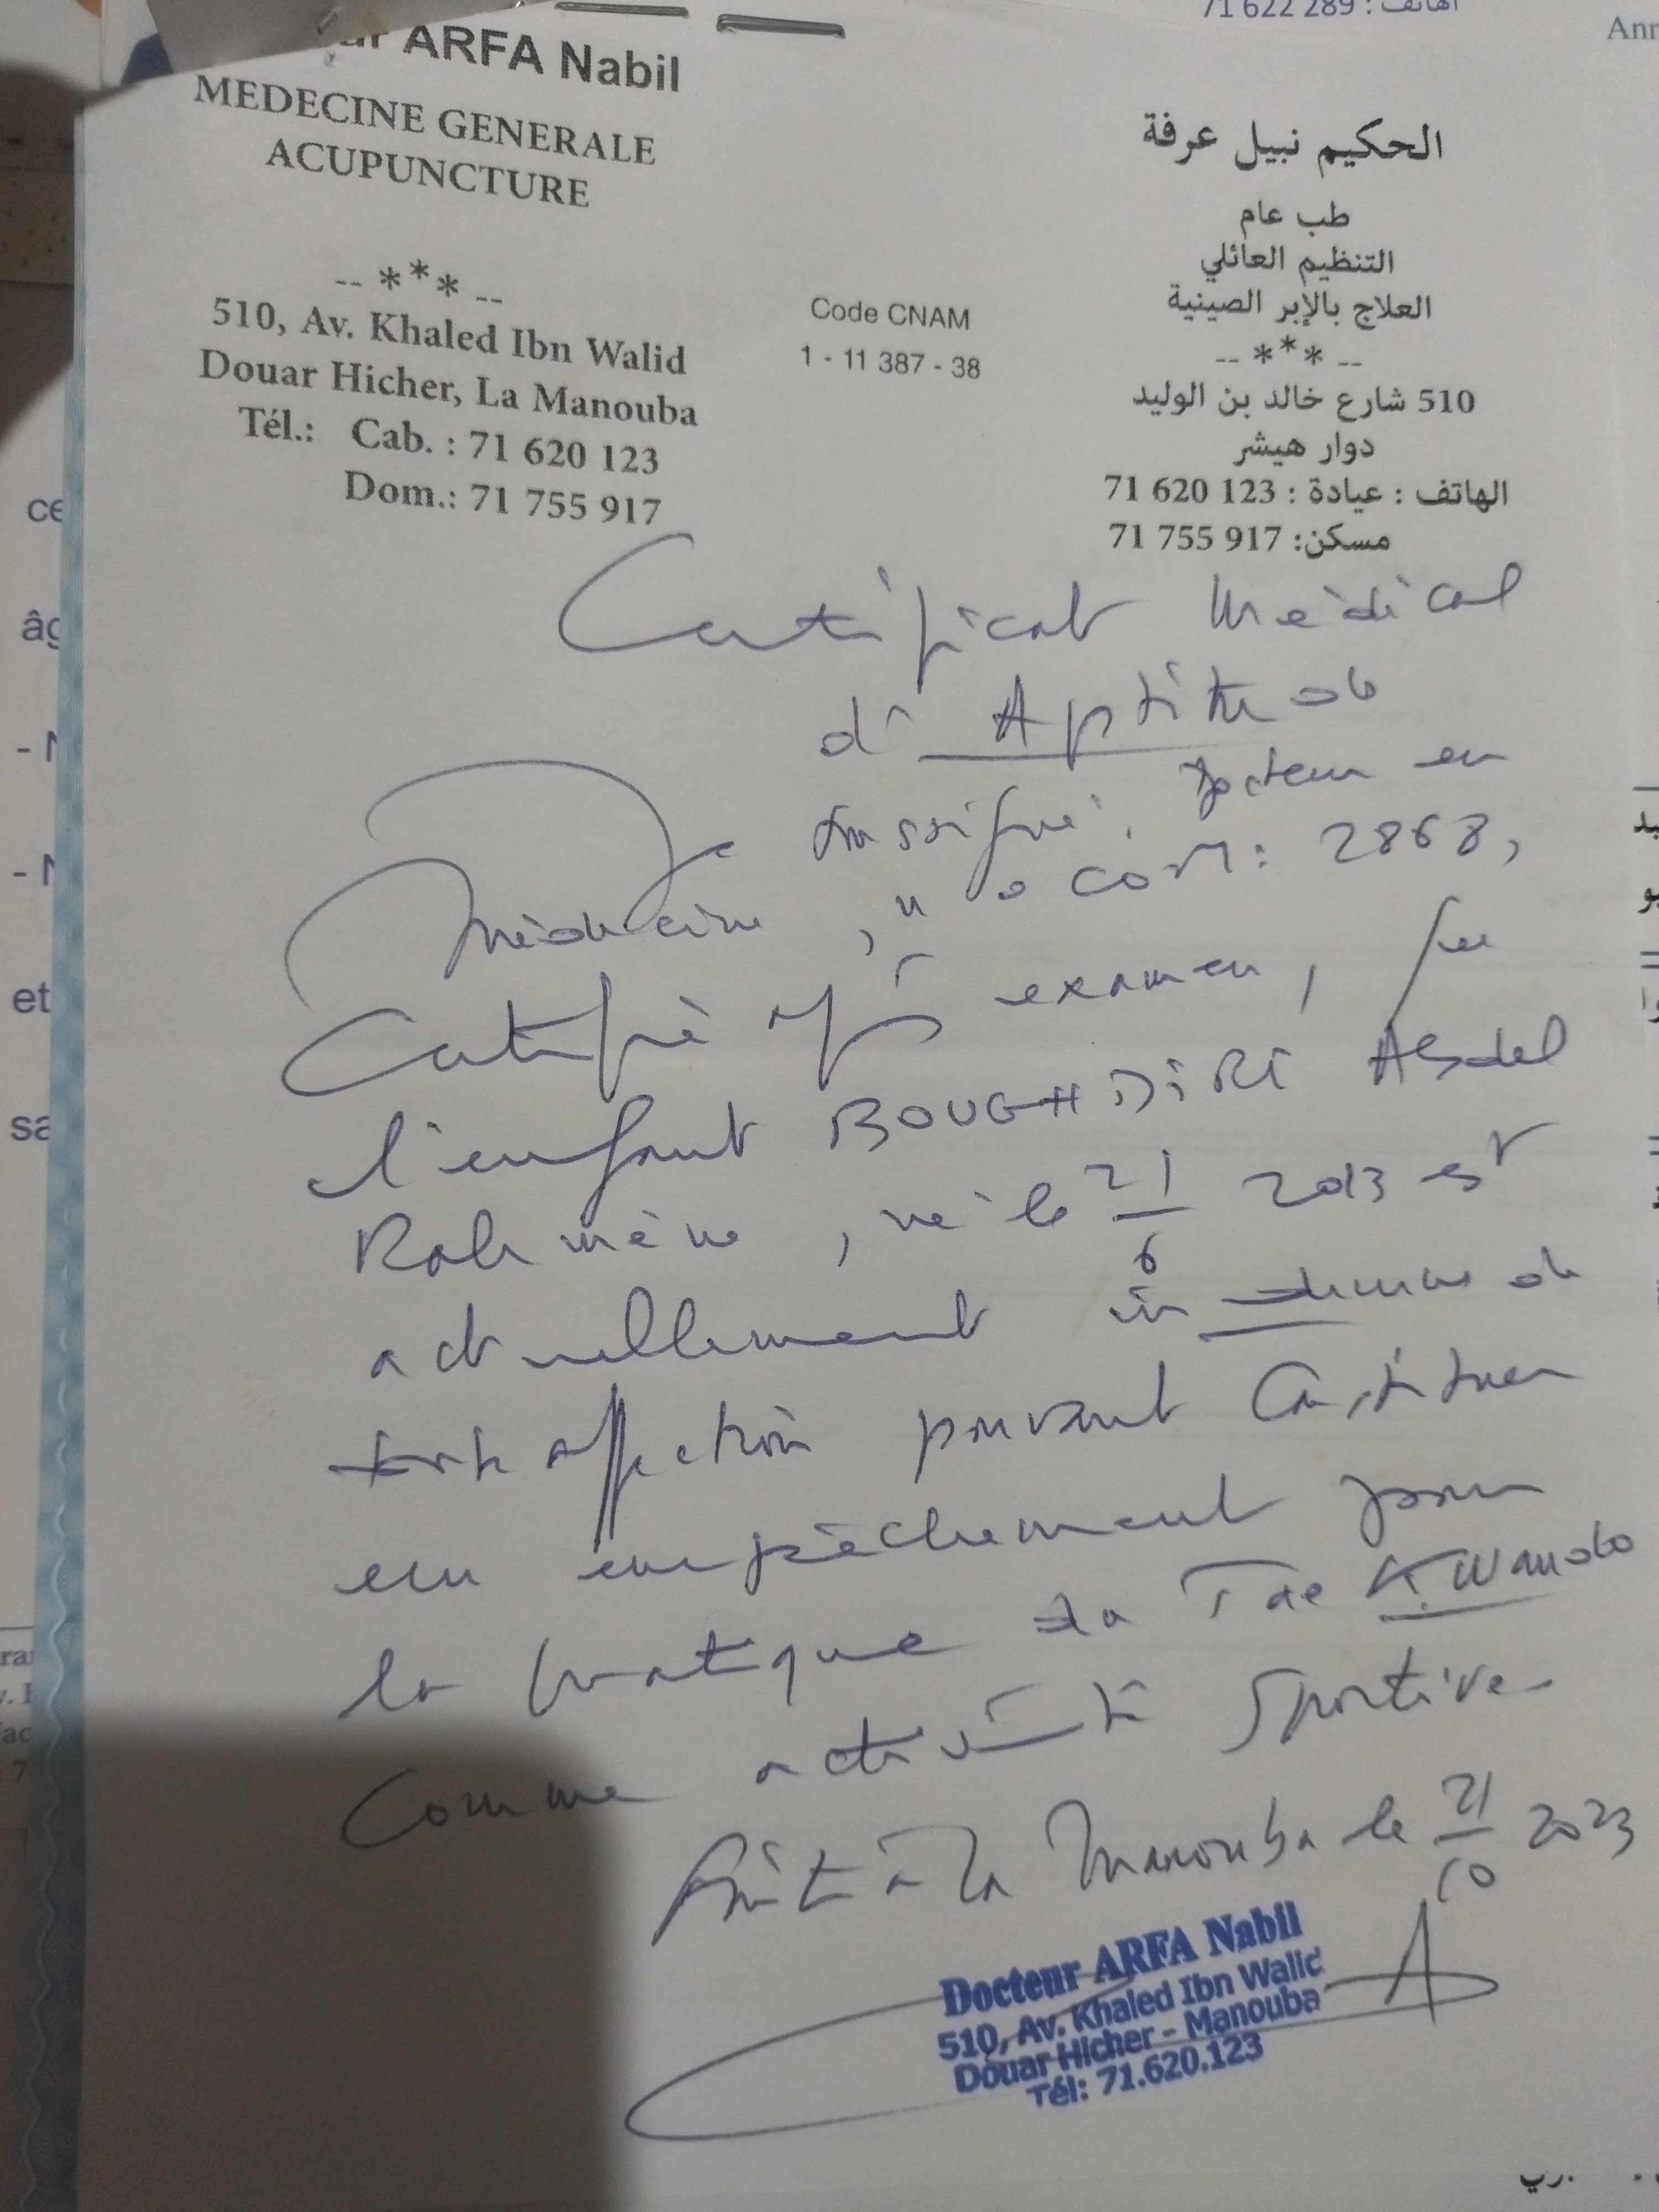 71 622 289 : الهاتف
Ann
ARFA Nabil
MEDECINE GENERALE
ACUPUNCTURE
-- *** --
510, Av. Khaled Ibn Walid
Douar Hicher, La Manouba
Tél.: Cab. : 71 620 123
Dom.: 71 755 917
Code CNAM
1 - 11 387 - 38
الحكيم نبيل عرفة
طب عام
التنظيم العائلي
العلاج بالإبر الصينية
-- *** --
510 شارع خالد بن الوليد
دوار هيشر
الهاتف : عيادة : 123 620 71
مسكن: 917 755 71
Certificat Médical
d'Aptitude
Je soussigné, Docteur en
Médecine, n° COM: 2868,
Certifie après examen, que
l'enfant BOUGHDIRI Abdel
Rahmène, né le 21/6 2013 est
actuellement indemne de
toute affection pouvant constituer
un empêchement pour
la pratique du Tae Kwando
comme activité sportive
Fait à la Manouba le 21/10 2023
Docteur ARFA Nabil
510, Av. Khaled Ibn Walid
Douar Hicher - Manouba
Tél: 71.620.123